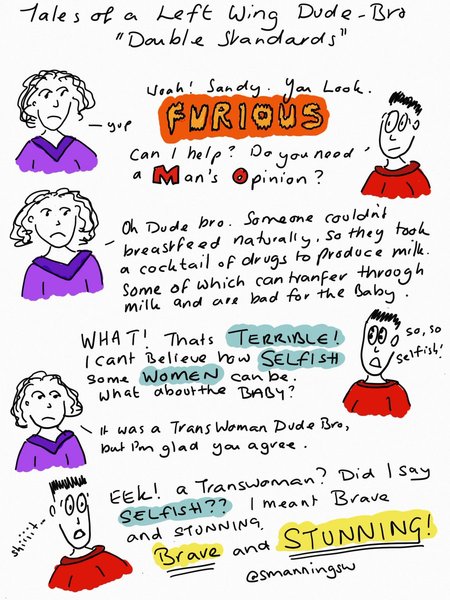 Tales of a Left Wing Dude-Bro
"Double Standards"
Woah! Sandy. You Look.
FURIOUS
yup
Can I help? Do you need
a Man's Opinion?
Oh Dude bro. Someone couldn't
breastfeed naturally, so they took
a cocktail of drugs to produce milk.
Some of which can tranfer through
milk and are bad for the Baby.
WHAT! Thats TERRIBLE!
I cant Believe how SELFISH
some WOMEN can be.
What about the BABY?
so, so
selfish!
It was a Trans Woman Dude Bro,
but I'm glad you agree.
EEk! a Transwoman? Did I say
SELFISH?? I meant Brave
and STUNNING.
Brave and STUNNING!
shiiiit
@smanningsw